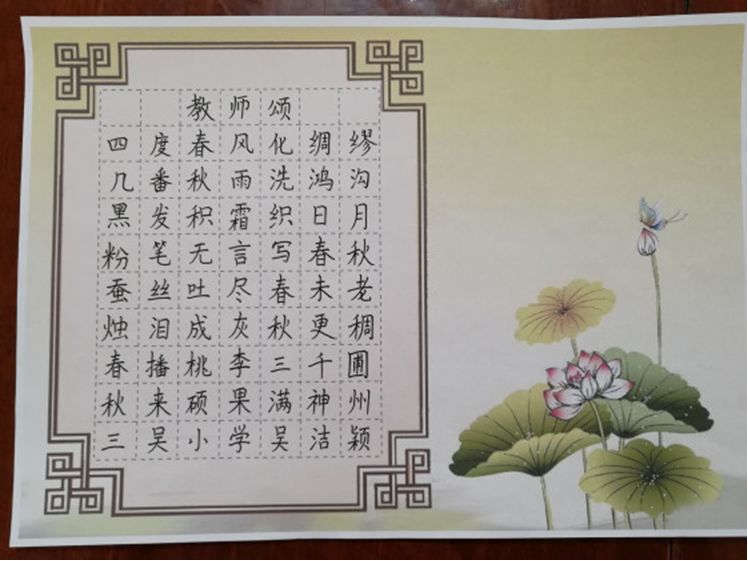 教师颂
四度春风化绸缪
几番秋雨洗鸿沟
黑发积霜织日月
粉笔无言写春秋
蚕丝吐尽春未老
烛泪成灰秋更稠
春播桃李三千圃
秋来硕果满神州
三吴小学吴洁颖